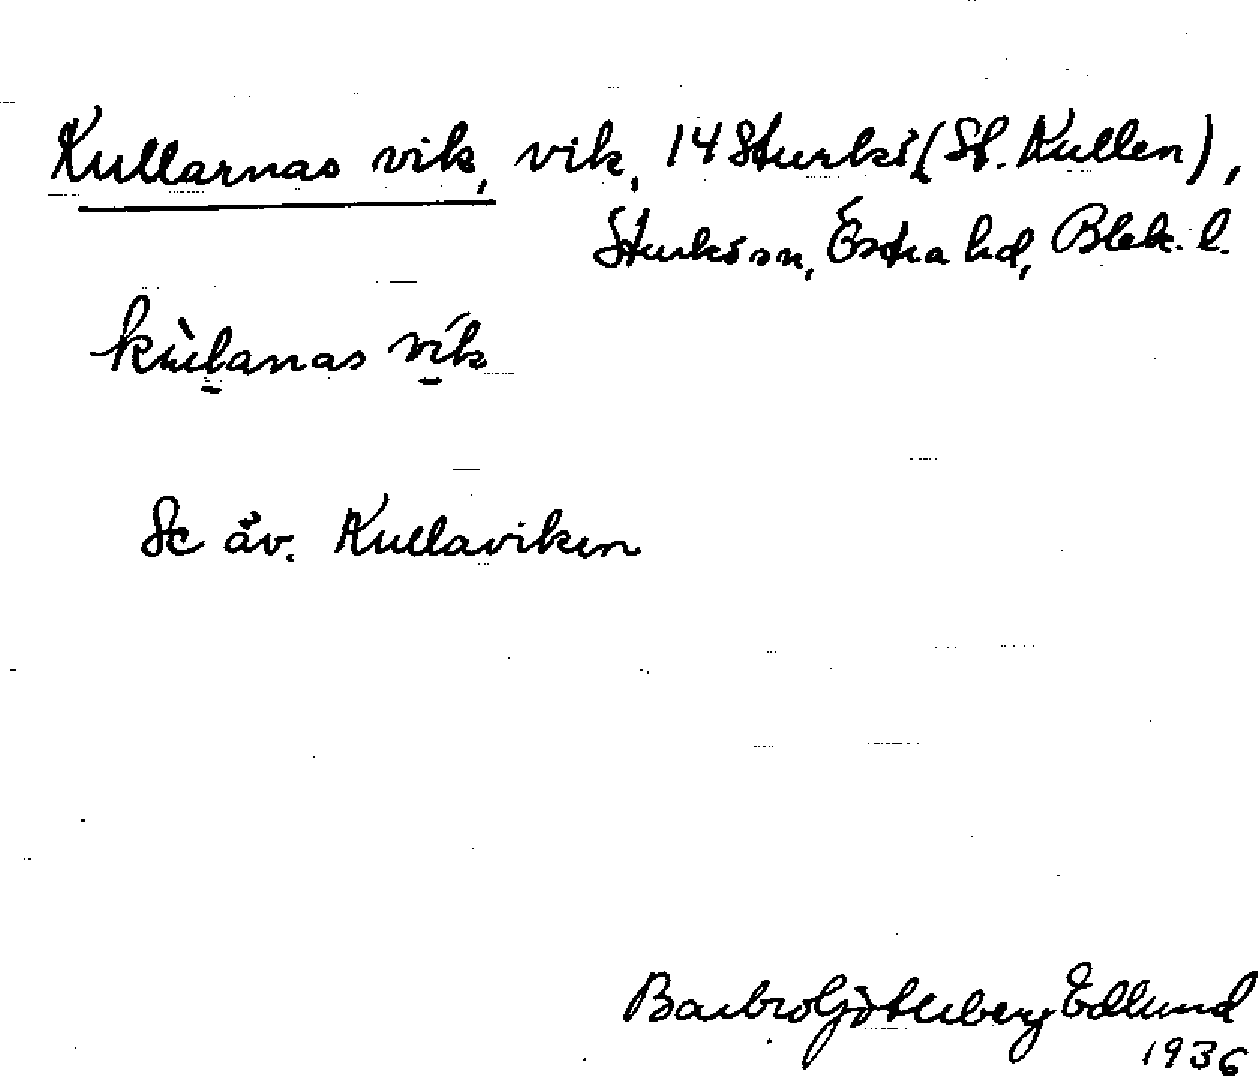 Kullarnas vik, vik, 14 Sturkö (St. Kullen),
Sturkö sn, Östra hd, Blek. l.
kùlanas vík
Se äv. Kullaviken
Barbro Göterberg Edlund
1936